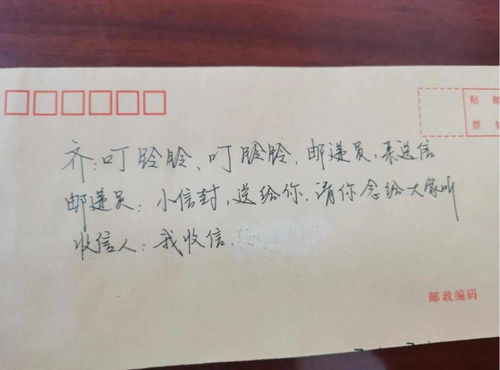 贴 邮
票 处
齐:叮铃铃、叮铃铃,邮递员,来送信
邮递员:小信封,送给你,请你念给大家听
收信人:我收信.
邮政编码